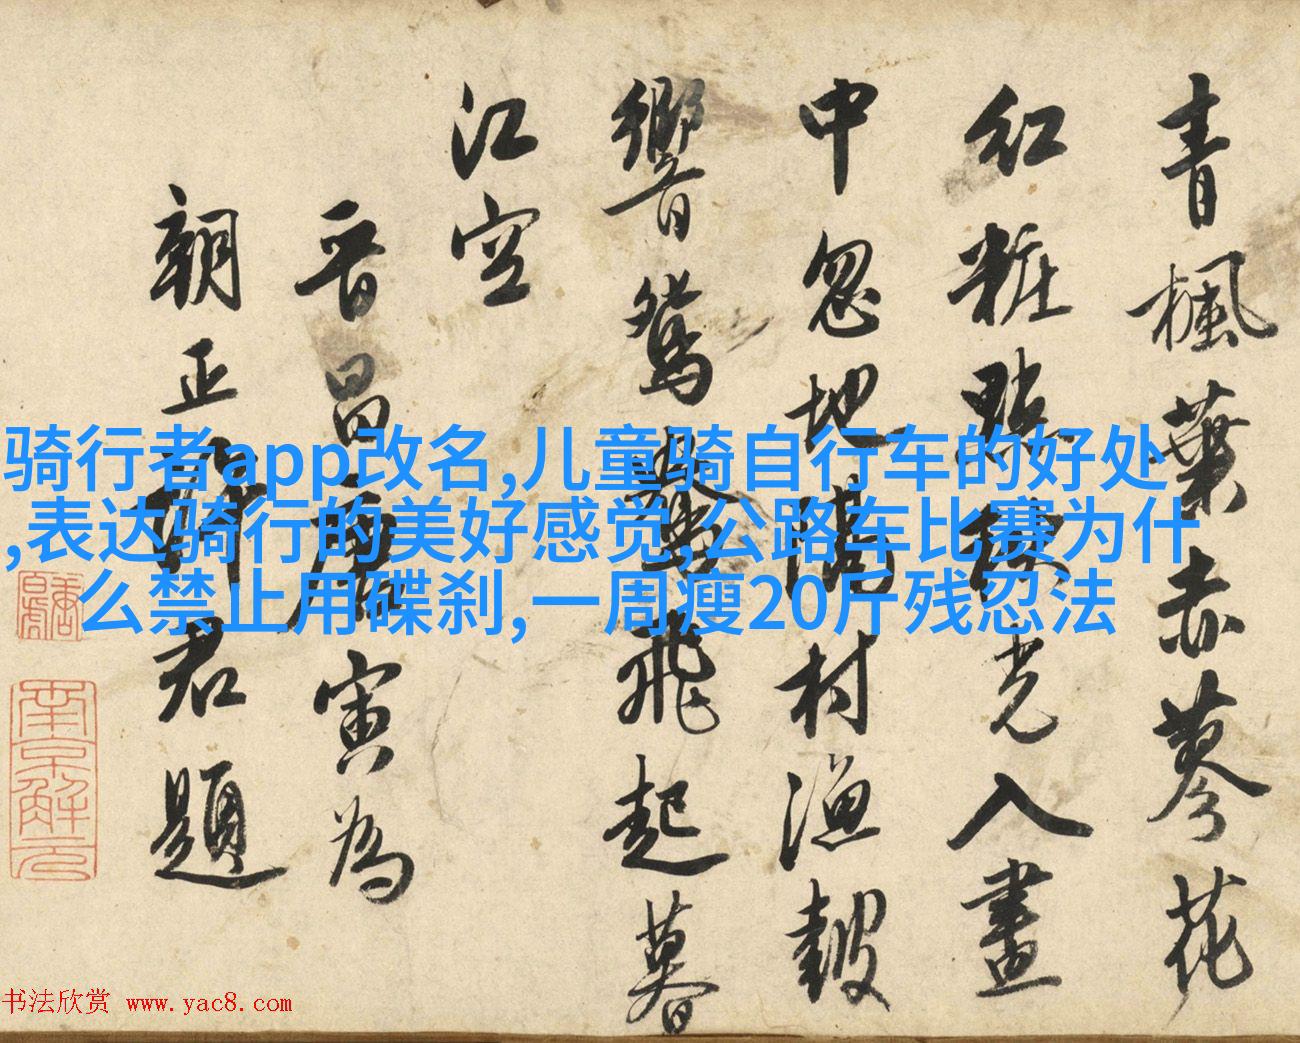 青楓葉赤蓼花
紅粧點秋光入畫
中忽地隔村漁皷
響鴛鴦飛起暮
江空
晉昌唐寅為
朝正君題
南京解元
骑行者app改名,儿童骑自行车的好处
,表达骑行的美好感觉,公路车比赛为什
么禁止用碟刹,一周瘦20斤残忍法
书法欣赏 www.yac8.com